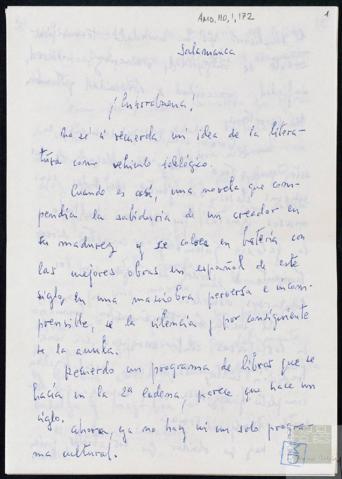 AMD. 110, 1, 172
1
Salamanca
¡Enhorabuena,
No sé si recuerda mi idea de la litera-
tura como vehículo ideológico.
Cuando es así, una novela, que com-
pendia la sabiduría de un creador en
su madurez y se coloca en batería con
las mejores obras en español de este
siglo, en una maniobra perversa e incom-
prensible, se la silencia, y por consiguiente
se la anula.
Recuerdo un programa de libros que se
hacía en la 2ª cadena, parece que hace un
siglo.
Ahora, ya no hay ni un solo progra-
ma cultural.